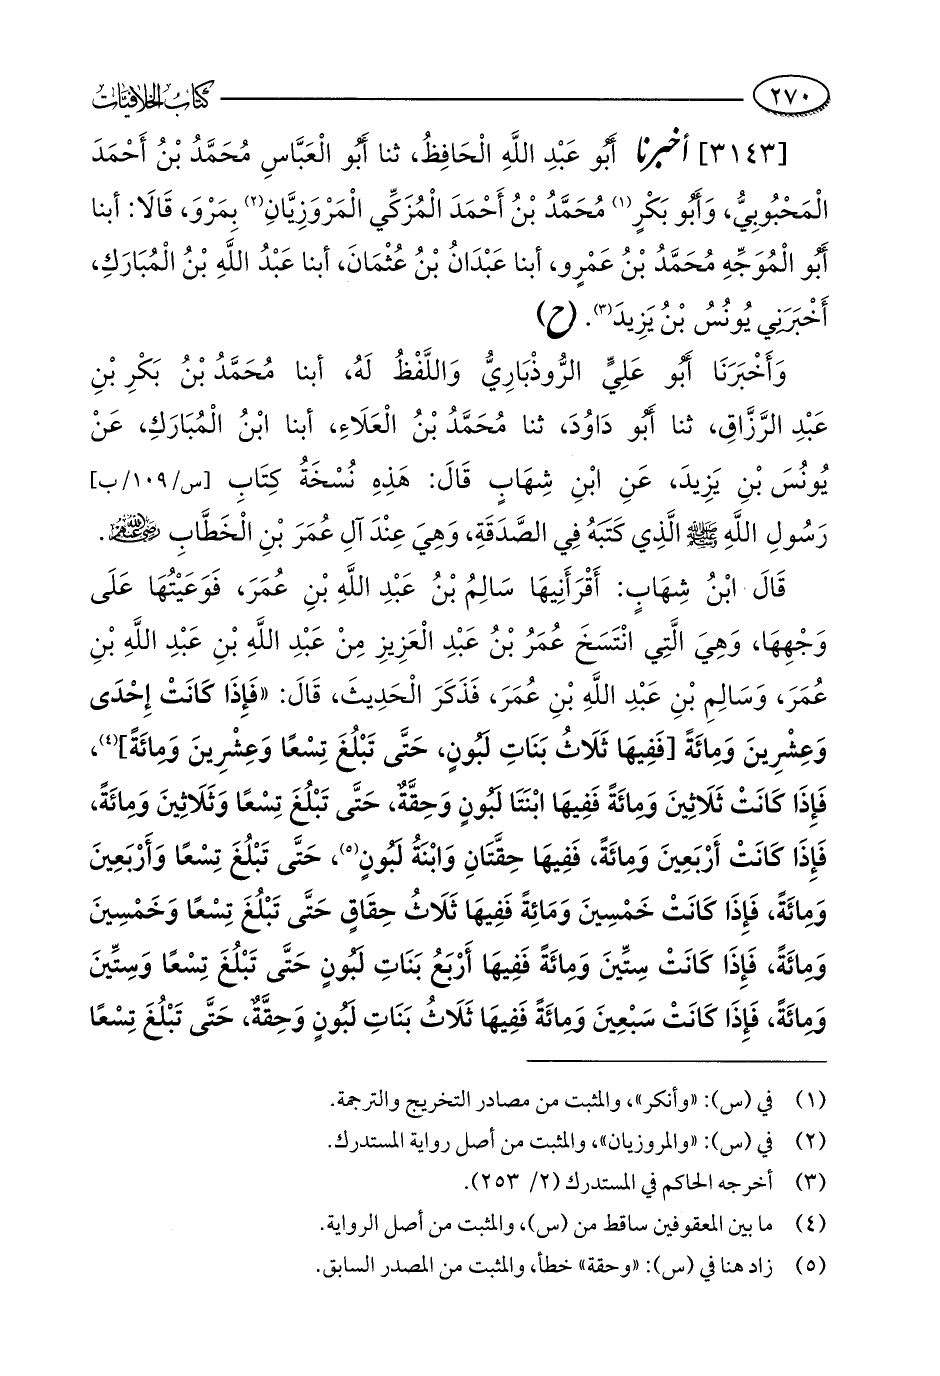 ٢٧٠ كتاب الخلافيات
[٣١٤٣] أخبرنا أَبُو عَبْدِ اللَّهِ الْحَافِظُ، ثنا أَبُو الْعَبَّاسِ مُحَمَّدُ بْنُ أَحْمَدَ
الْمَحْبُوبِيُّ، وَأَبُو بَكْرٍ(١) مُحَمَّدُ بْنُ أَحْمَدَ الْمُزَكِّي الْمَرْوَزِيَّانِ(٢) بِمَرْوَ، قَالَا: أبنا
أَبُو الْمُوَجِّهِ مُحَمَّدُ بْنُ عَمْرٍو، أبنا عَبْدَانُ بْنُ عُثْمَانَ، أبنا عَبْدُ اللَّهِ بْنُ الْمُبَارَكِ،
أَخْبَرَنِي يُونُسُ بْنُ يَزِيدَ(٣). (ح)
وَأَخْبَرَنَا أَبُو عَلِيٍّ الرُّوذْبَارِيُّ وَاللَّفْظُ لَهُ، أبنا مُحَمَّدُ بْنُ بَكْرِ بْنِ
عَبْدِ الرَّزَّاقِ، ثنا أَبُو دَاوُدَ، ثنا مُحَمَّدُ بْنُ الْعَلَاءِ، أبنا ابْنُ الْمُبَارَكِ، عَنْ
يُونُسَ بْنِ يَزِيدَ، عَنِ ابْنِ شِهَابٍ قَالَ: هَذِهِ نُسْخَةُ كِتَابِ [س/١٠٩/ب]
رَسُولِ اللَّهِ ﷺ الَّذِي كَتَبَهُ فِي الصَّدَقَةِ، وَهِيَ عِنْدَ آلِ عُمَرَ بْنِ الْخَطَّابِ رضي الله عنهم.
قَالَ ابْنُ شِهَابٍ: أَقْرَأَنِيهَا سَالِمُ بْنُ عَبْدِ اللَّهِ بْنِ عُمَرَ، فَوَعَيْتُهَا عَلَى
وَجْهِهَا، وَهِيَ الَّتِي انْتَسَخَ عُمَرُ بْنُ عَبْدِ الْعَزِيزِ مِنْ عَبْدِ اللَّهِ بْنِ عَبْدِ اللَّهِ بْنِ
عُمَرَ، وَسَالِمِ بْنِ عَبْدِ اللَّهِ بْنِ عُمَرَ، فَذَكَرَ الْحَدِيثَ، قَالَ: «فَإِذَا كَانَتْ إِحْدَى
وَعِشْرِينَ وَمِائَةً [فَفِيهَا ثَلَاثُ بَنَاتِ لَبُونٍ، حَتَّى تَبْلُغَ تِسْعًا وَعِشْرِينَ وَمِائَةً](٤)،
فَإِذَا كَانَتْ ثَلَاثِينَ وَمِائَةً فَفِيهَا ابْنَتَا لَبُونٍ وَحِقَّةٌ، حَتَّى تَبْلُغَ تِسْعًا وَثَلَاثِينَ وَمِائَةً،
فَإِذَا كَانَتْ أَرْبَعِينَ وَمِائَةً، فَفِيهَا حِقَّتَانِ وَابْنَةُ لَبُونٍ(٥)، حَتَّى تَبْلُغَ تِسْعًا وَأَرْبَعِينَ
وَمِائَةً، فَإِذَا كَانَتْ خَمْسِينَ وَمَائِةً فَفِيهَا ثَلَاثُ حِقَاقٍ حَتَّى تَبْلُغَ تِسْعًا وَخَمْسِينَ
وَمِائَةً، فَإِذَا كَانَتْ سِتِّينَ وَمِائَةً فَفِيهَا أَرْبَعُ بَنَاتِ لَبُونٍ حَتَّى تَبْلُغَ تِسْعًا وَسِتِّينَ
وَمِائَةً، فَإِذَا كَانَتْ سَبْعِينَ وَمِائَةً فَفِيهَا ثَلَاثُ بَنَاتِ لَبُونٍ وَحِقَّةٌ، حَتَّى تَبْلُغَ تِسْعًا
(١) في (س): «وأنكر»، والمثبت من مصادر التخريج والترجمة.
(٢) في (س): «والمروزيان»، والمثبت من أصل رواية المستدرك.
(٣) أخرجه الحاكم في المستدرك (٢/ ٢٥٣).
(٤) ما بين المعقوفين ساقط من (س)، والمثبت من أصل الرواية.
(٥) زاد هنا في (س): «وحقة» خطأ، والمثبت من المصدر السابق.